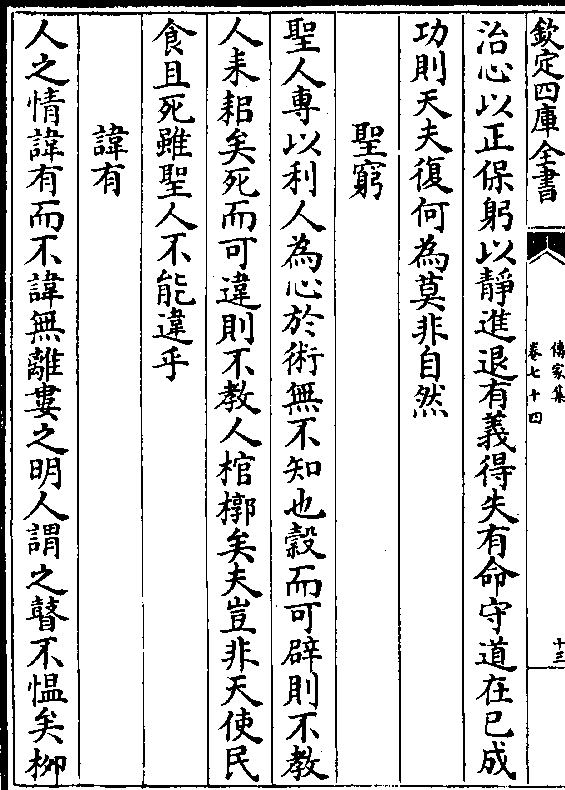 欽定四庫全書
傳家集
卷七十四
十三
治心以正保躬以靜進退有義得失有命守道在己成
功則天夫復何為莫非自然
聖窮
聖人專以利人為心於術無不知也穀而可辟則不教
人耒耜矣死而可違則不教人棺槨矣夫豈非天使民
食且死雖聖人不能違乎
諱有
人之情諱有而不諱無離婁之明人謂之瞽不愠矣柳